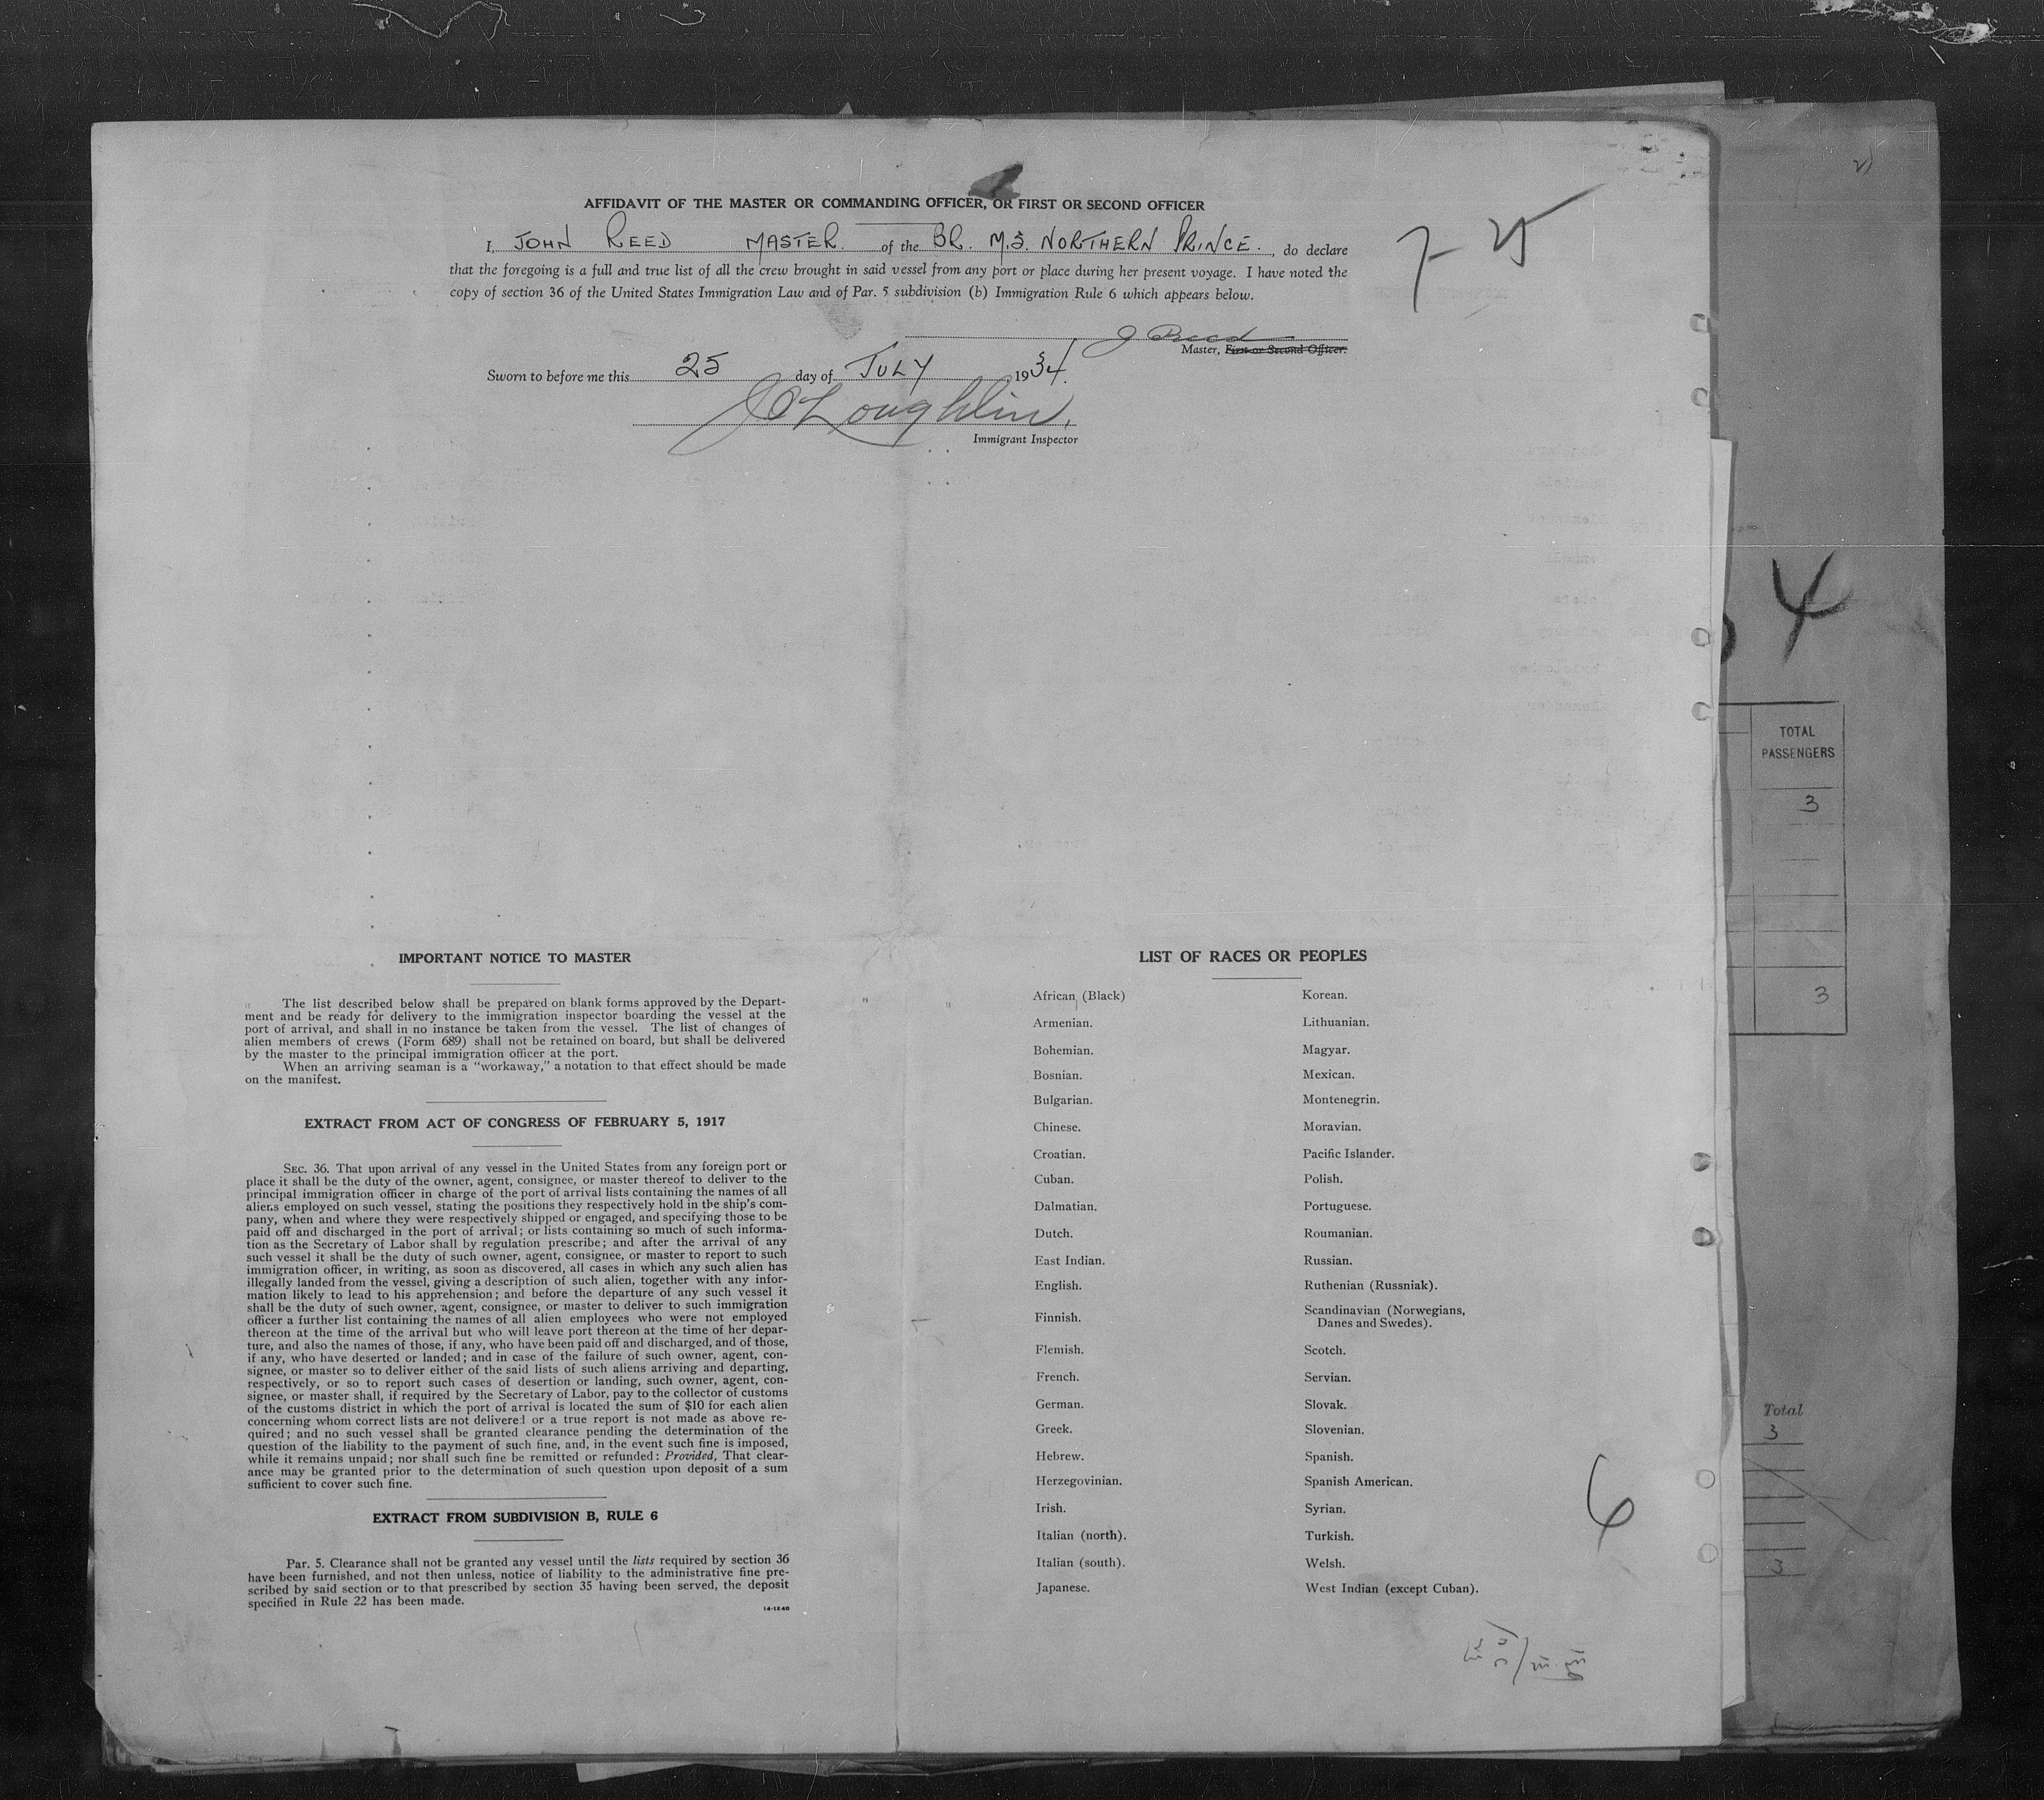 AFFIDAVIT OF THE MASTER OR COMMANDING OFFICER, OR FIRST OR SECOND OFFICER
I, JOHN REED MASTER. of the BR. M.S. NORTHERN PRINCE., do declare
that the foregoing is a full and true list of all the crew brought in said vessel from any port or place during her present voyage. I have noted the
copy of section 36 of the United States Immigration Law and of Par. 5 subdivision (b) Immigration Rule 6 which appears below.
7-25
J Reed
Master, First or Second Officer.
Sworn to before me this 25 day of JULY, 1934.
J O'Loughlin,
Immigrant Inspector
IMPORTANT NOTICE TO MASTER
The list described below shall be prepared on blank forms approved by the Depart-
ment and be ready for delivery to the immigration inspector boarding the vessel at the
port of arrival, and shall in no instance be taken from the vessel. The list of changes of
alien members of crews (Form 689) shall not be retained on board, but shall be delivered
by the master to the principal immigration officer at the port.
When an arriving seaman is a "workaway," a notation to that effect should be made
on the manifest.
EXTRACT FROM ACT OF CONGRESS OF FEBRUARY 5, 1917
SEC. 36. That upon arrival of any vessel in the United States from any foreign port or
place it shall be the duty of the owner, agent, consignee, or master thereof to deliver to the
principal immigration officer in charge of the port of arrival lists containing the names of all
aliens employed on such vessel, stating the positions they respectively hold in the ship's com-
pany, when and where they were respectively shipped or engaged, and specifying those to be
paid off and discharged in the port of arrival; or lists containing so much of such informa-
tion as the Secretary of Labor shall by regulation prescribe; and after the arrival of any
such vessel it shall be the duty of such owner, agent, consignee, or master to report to such
immigration officer, in writing, as soon as discovered, all cases in which any such alien has
illegally landed from the vessel, giving a description of such alien, together with any infor-
mation likely to lead to his apprehension; and before the departure of any such vessel it
shall be the duty of such owner, agent, consignee, or master to deliver to such immigration
officer a further list containing the names of all alien employees who were not employed
thereon at the time of the arrival but who will leave port thereon at the time of her depar-
ture, and also the names of those, if any, who have been paid off and discharged, and of those,
if any, who have deserted or landed; and in case of the failure of such owner, agent, con-
signee, or master so to deliver either of the said lists of such aliens arriving and departing,
respectively, or so to report such cases of desertion or landing, such owner, agent, con-
signee, or master shall, if required by the Secretary of Labor, pay to the collector of customs
of the customs district in which the port of arrival is located the sum of $10 for each alien
concerning whom correct lists are not delivered or a true report is not made as above re-
quired; and no such vessel shall be granted clearance pending the determination of the
question of the liability to the payment of such fine, and, in the event such fine is imposed,
while it remains unpaid; nor shall such fine be remitted or refunded: Provided, That clear-
ance may be granted prior to the determination of such question upon deposit of a sum
sufficient to cover such fine.
EXTRACT FROM SUBDIVISION B, RULE 6
Par. 5. Clearance shall not be granted any vessel until the lists required by section 36
have been furnished, and not then unless, notice of liability to the administrative fine pre-
scribed by said section or to that prescribed by section 35 having been served, the deposit
specified in Rule 22 has been made.
14-1240
LIST OF RACES OR PEOPLES
African (Black)
Armenian.
Bohemian.
Bosnian.
Bulgarian.
Chinese.
Croatian.
Cuban.
Dalmatian.
Dutch.
East Indian.
English.
Finnish.
Flemish.
French.
German.
Greek.
Hebrew.
Herzegovinian.
Irish.
Italian (north).
Italian (south).
Japanese.
Korean.
Lithuanian.
Magyar.
Mexican.
Montenegrin.
Moravian.
Pacific Islander.
Polish.
Portuguese.
Roumanian.
Russian.
Ruthenian (Russniak).
Scandinavian (Norwegians,
Danes and Swedes).
Scotch.
Servian.
Slovak.
Slovenian.
Spanish.
Spanish American.
Syrian.
Turkish.
Welsh.
West Indian (except Cuban).
6
4
TOTAL
PASSENGERS
3
3
Total
3
3